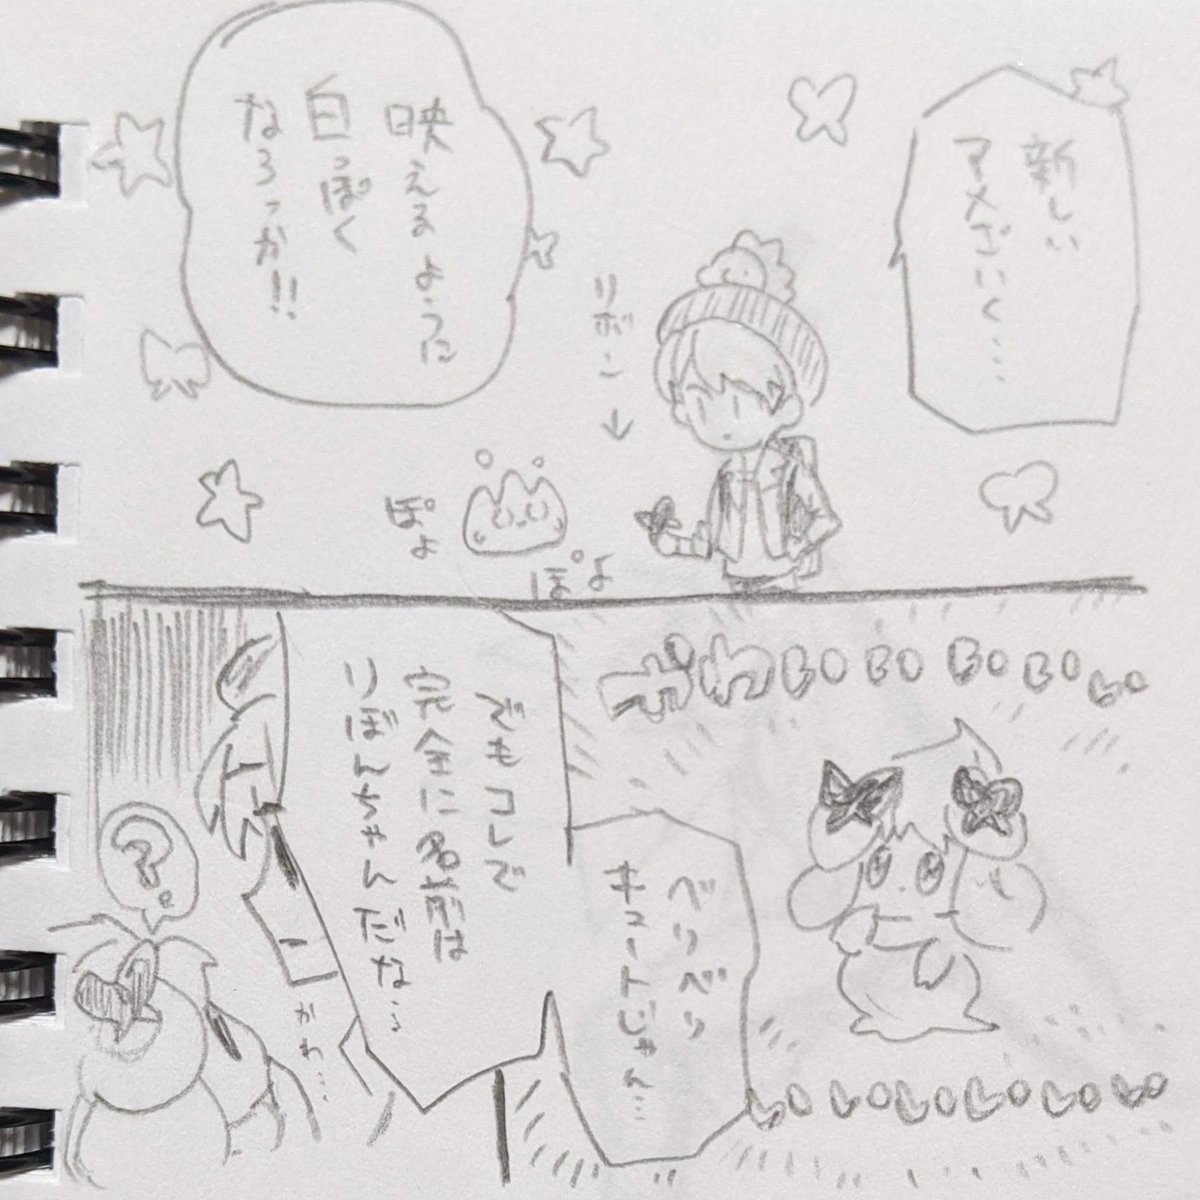 新しい
アメざいく…
リボン
↓
映えるように
白っぽく
なろっか!!
ぽよ
ぽよ
かわ
ベリベリ
キュートじゃん…
でもコレで
完全に名前は
りぼんちゃんだな…
?
かわ…